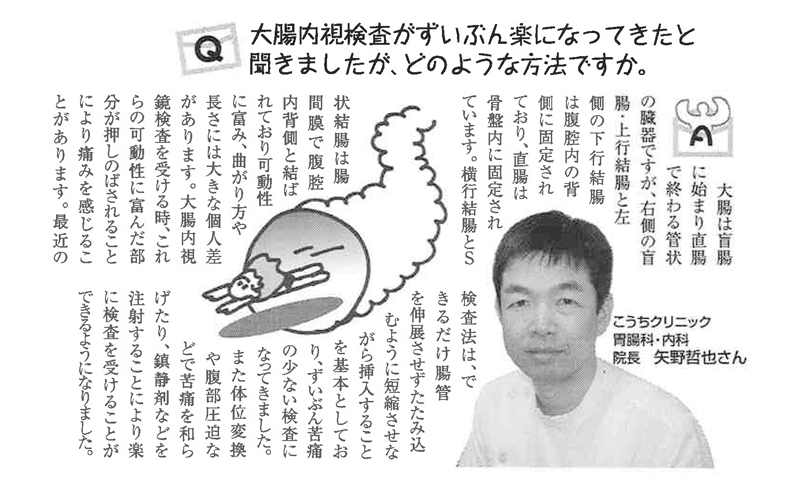 Q
大腸内視検査がずいぶん楽になってきたと
聞きましたが、どのような方法ですか。
A
大腸は盲腸
に始まり直腸
で終わる管状
の臓器ですが、右側の盲
腸・上行結腸と左
側の下行結腸
は腹腔内の背
側に固定され
ており、直腸は
骨盤内に固定され
ています。横行結腸とS
状結腸は腸
間膜で腹腔
内背側と結ば
れており可動性
に富み、曲がり方や
長さには大きな個人差
があります。大腸内視
鏡検査を受ける時、これ
らの可動性に富んだ部
分が押しのばされること
により痛みを感じるこ
とがあります。最近の
検査法は、で
きるだけ腸管
を伸展させずたたみ込
むように短縮させな
がら挿入すること
を基本としてお
り、ずいぶん苦痛
の少ない検査に
なってきました。
また体位変換
や腹部圧迫な
どで苦痛を和ら
げたり、鎮静剤などを
注射することにより楽
に検査を受けることが
できるようになりました。
こうちクリニック
胃腸科・内科
院長 矢野哲也さん